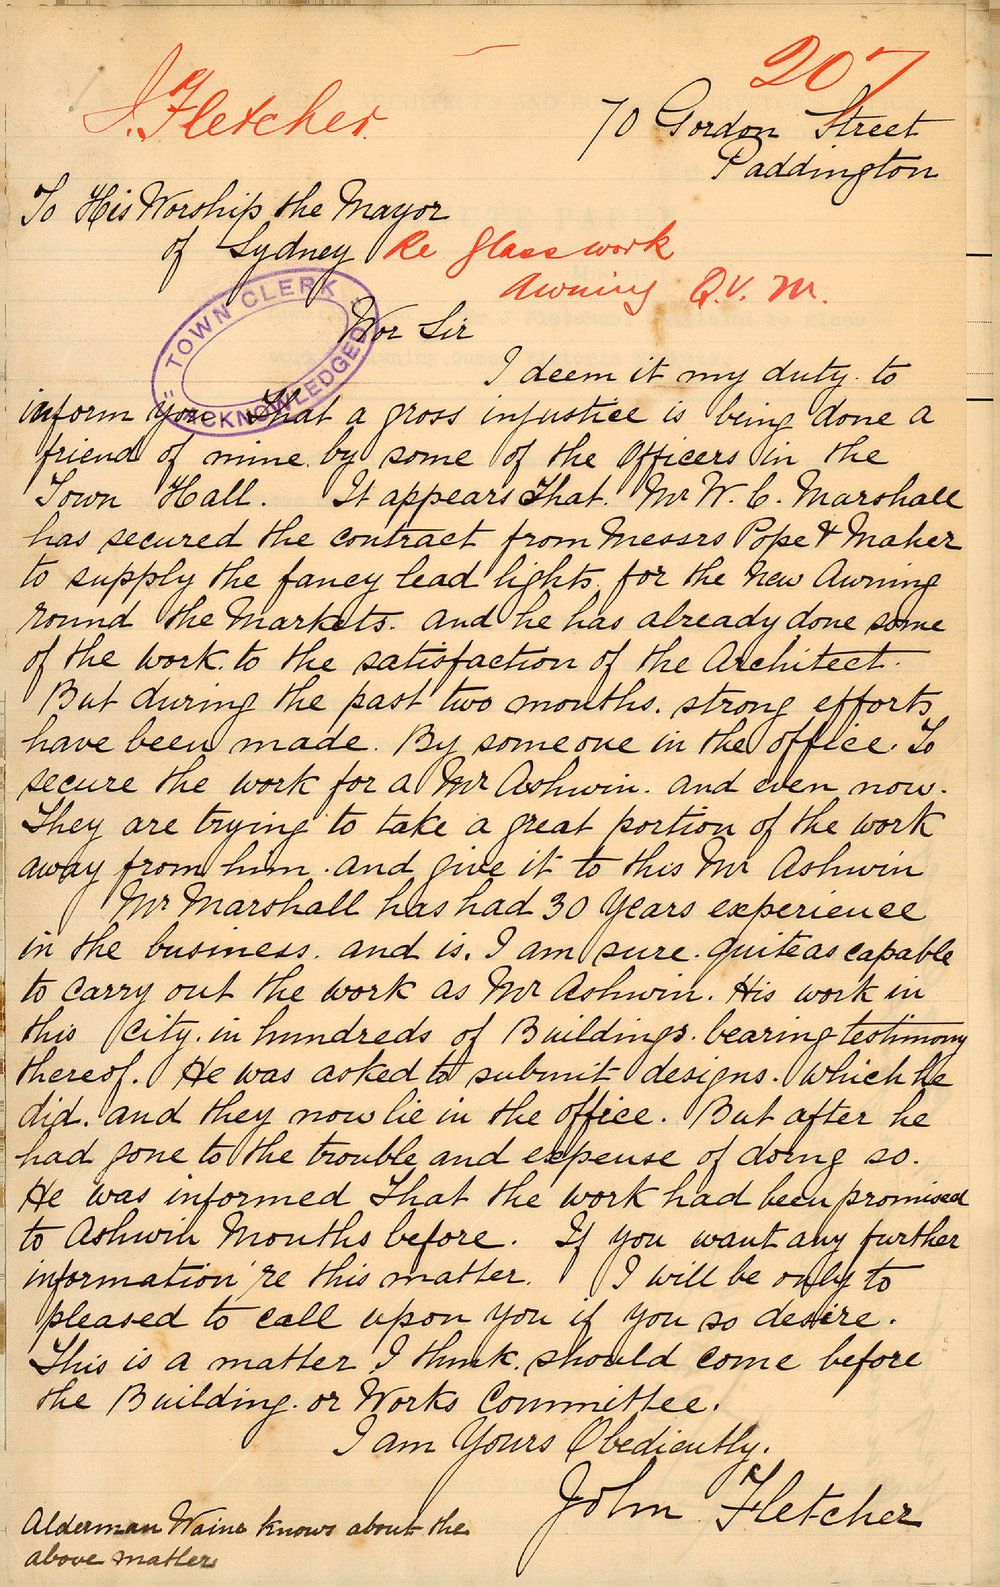 207
J. Fletcher
70 Gordon Street
Paddington
To His Worship the Mayor
of Sydney
Re Glass work
Awning Q.V.M.
TOWN CLERK
ACKNOWLEDGED
Wor Sir
I deem it my duty. to
inform you that a gross injustice is being done a
friend of mine. by some of the officers in the
Town Hall. It appears that. Mr W. C. Marshall
has secured the contract from Messrs Pope & Maher
to supply the fancy lead lights. for the new Awning
round the Markets. and he has already done some
of the work. to the satisfaction of the Architect.
But during the past two months. strong efforts
have been made. By someone in the office. To
secure the work for a Mr Ashwin. and even now.
They are trying to take a great portion of the work
away from him. and give it to this Mr Ashwin
Mr Marshall has had 30 years experience
in the business. and is. I am sure. quite as capable
to carry out the work as Mr Ashwin. His work in
this City. in hundreds of Buildings. bearing testimony
thereof. He was asked to submit designs. which he
did. and they now lie in the office. But after he
had gone to the trouble and expense of doing so.
He was informed that the work had been promised
to Ashwin Months before. If you want any further
information 're this matter. I will be only to
pleased to call upon you if you so desire.
This is a matter I think. should come before
the Building. or Works Committee.
I am Yours Obediently.
John Fletcher
Alderman Waine knows about the
above matter